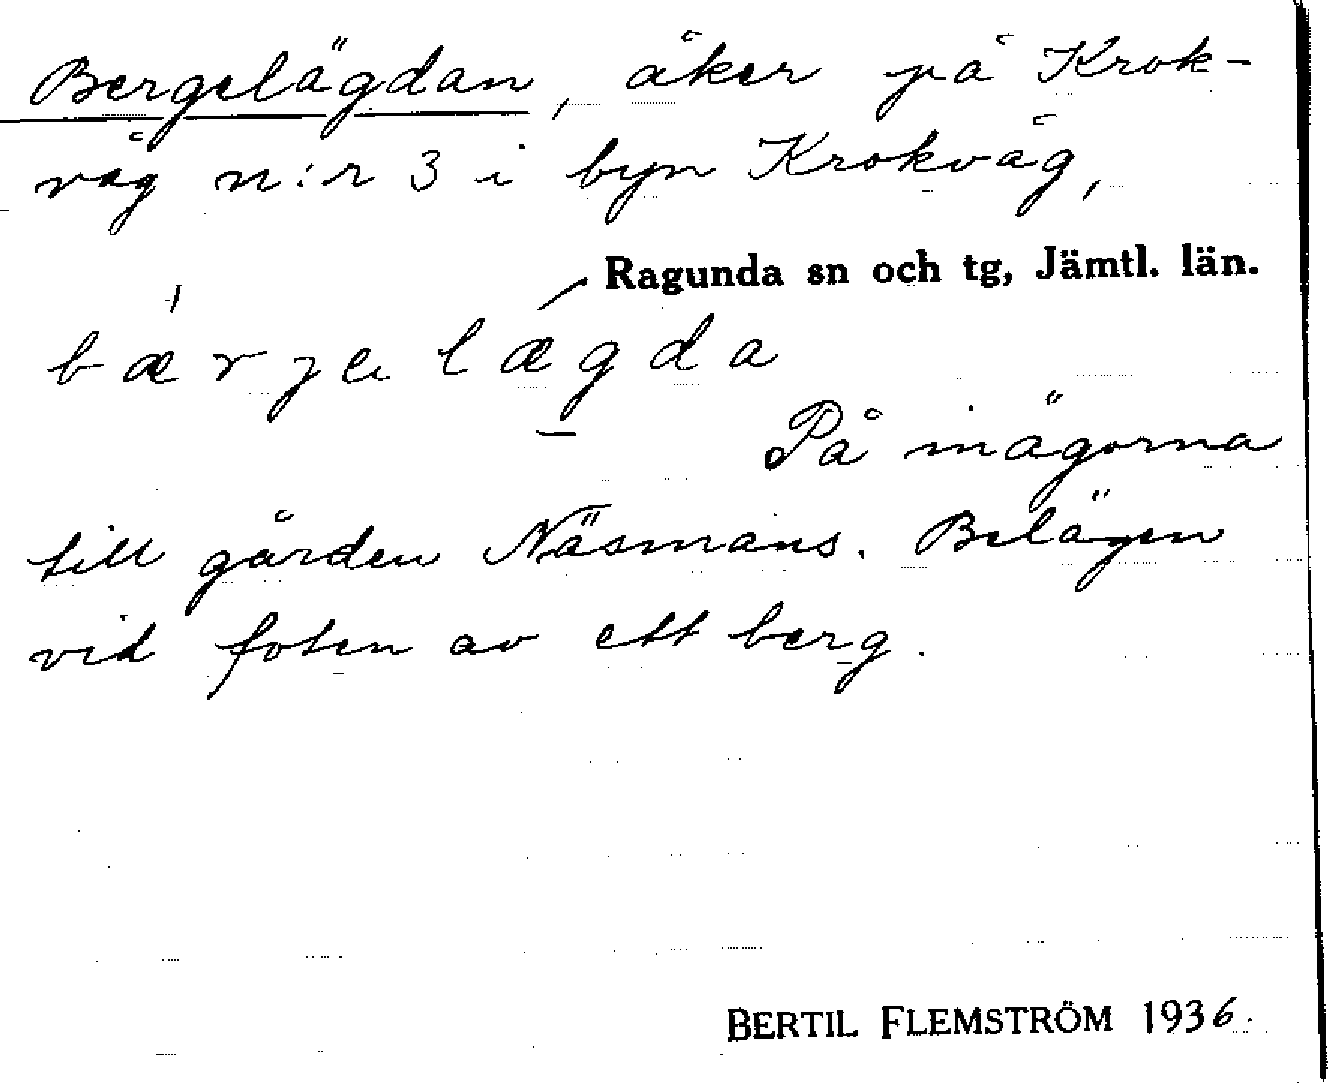 Bergelägdan, åker på Krok-
våg n:r 3 i byn Krokvåg,
Ragunda sn och tg, Jämtl. län.
bærje lægda
På inägorna
till gården Näsmans. Belägen
vid foten av ett berg.
BERTIL FLEMSTRÖM 1936.